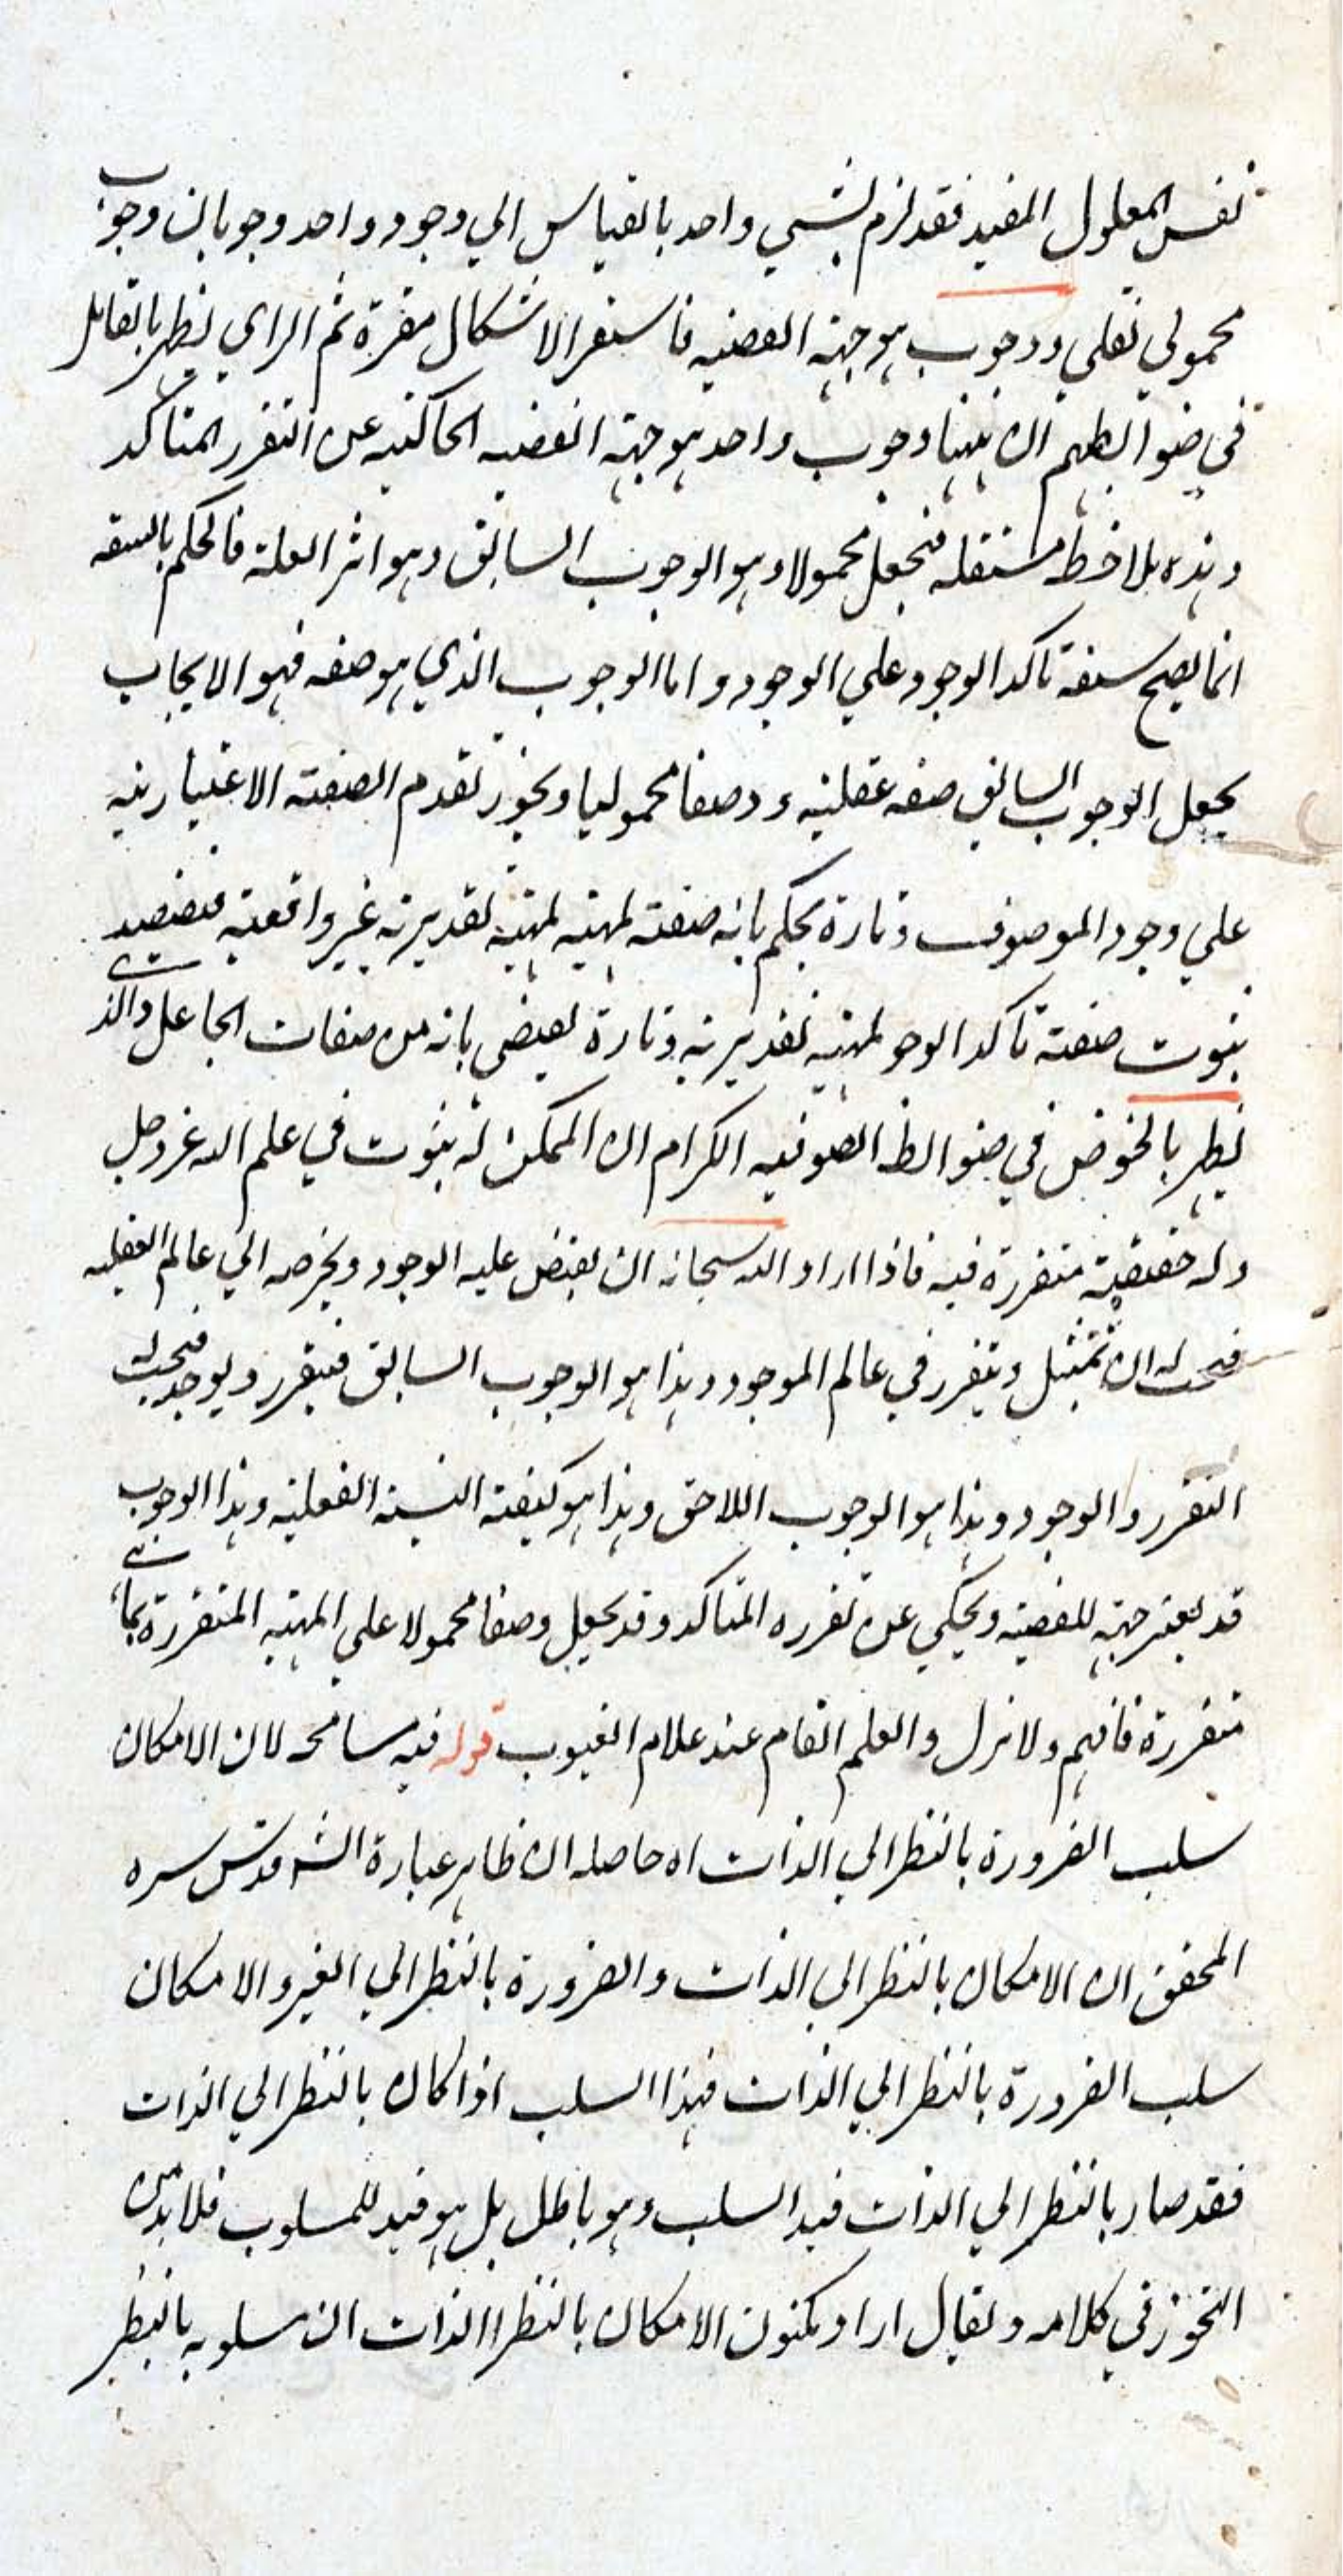 نفس المعلول المفيد فقد لزم لشيي واحد بالقياس الي وجود واحد وجوبان وجوب
محمولي نقلي ووجوب هو جهته القضيه فاستقر الاشكال مقرة ثم الراي يظهر بالتعامل
في ضوابطهم ان ههنا وجوب واحد هو جهته القضيه الحاكيه عن التقرر المتاكد
وهذه بلاخط مستقله فيجعل محمولا وهو الوجوب السابق وهو اثر العلة فالحكم بالسبقه
انما يصح سبقة تاكد الوجود علي الوجود واما الوجوب الذي هو صفه فهو الايجاب
يجعل الوجوب السابق صفه عقليه ووصفا محموليا ويجوز تقدم الصفته الاعتباريه
علي وجود الموصوف وتارة يحكم بانه صفته لمهيته لمهيه تقديريه غير واقعيه
ثبوت صفته تاكد الوجو لمهيه تقديريه وتارة يقضي بانه من صفات الجاعل والذي
يظهر بالخوض في ضوابط الصوفيه الكرام ان الممكن له ثبوت في علم الله عز وجل
وله حقيقية متقررة فيه فاذا اراد الله سبحانه ان يفيض عليه الوجود ويخرجه الي عالم الفعليه
فيجب له ان تمثيل ويتقرر في عالم الموجود وهذا هو الوجوب السابق فيتقرر ويوجد فيجب له
التقرر والوجود وهذا هو الوجوب اللاحق وهذا هو كيفته النسبة الفعليه وهذا الوجوب
قد يعتبر جهته للقضيه ويحكي عن تقرره المتاكد وقد يجعل وصفا محمولا علي المهيه المتقررة بما هي
متقررة فافهم ولا تزل والعلم التام عند علام الغيوب قوله فيه مسامحه لان الامكان
سلب الضرورة بالنظر الي الذات اه حاصله ان ظاهر عبارة الشه قدس سره
المحقق ان الامكان بالنظر الي الذات والضرورة بالنظر الي الغير والامكان
سلب الضرورة بالنظر الي الذات فهذا السلب اذا كان بالنظر الي الذات
فقد صار بالنظر الي الذات قيد السلب وهو باطل بل هو قيد للمسلوب فلا بد من
التجوز في كلامه ويقال اراد بكون الامكان بالنظر الذات ان مسلوبه بالنظر